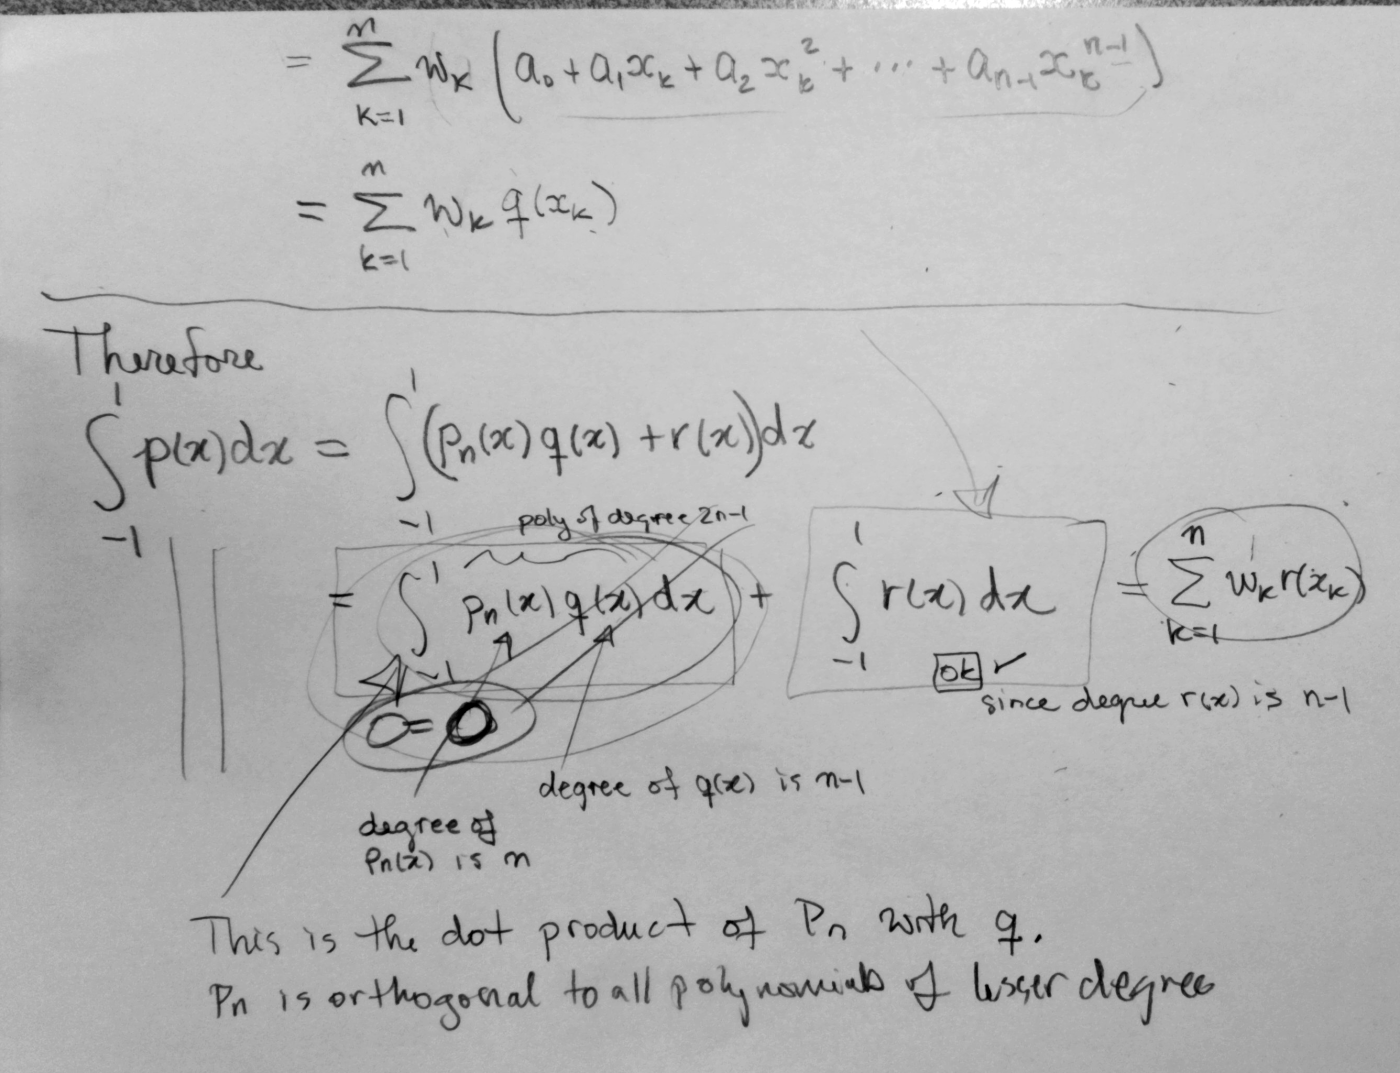 = \sum_{k=1}^{n} w_k (a_0 + a_1 x_k + a_2 x_k^2 + ⋯ + a_{n-1} x_k^{n-1})
= \sum_{k=1}^{n} w_k q(x_k)
Therefore
\int_{-1}^{1} p(x)dx = \int_{-1}^{1} (p_n(x) q(x) + r(x))dx
poly of degree 2n-1
= \int_{-1}^{1} p_n(x) q(x) dx + \int_{-1}^{1} r(x) dx = \sum_{k=1}^{n} w_k r(x_k)
ok ✓
since degree r(x) is n-1
0 = 0
degree of q(x) is n-1
degree of
Pn(x) is n
This is the dot product of Pn with q.
Pn is orthogonal to all polynomials of lesser degree